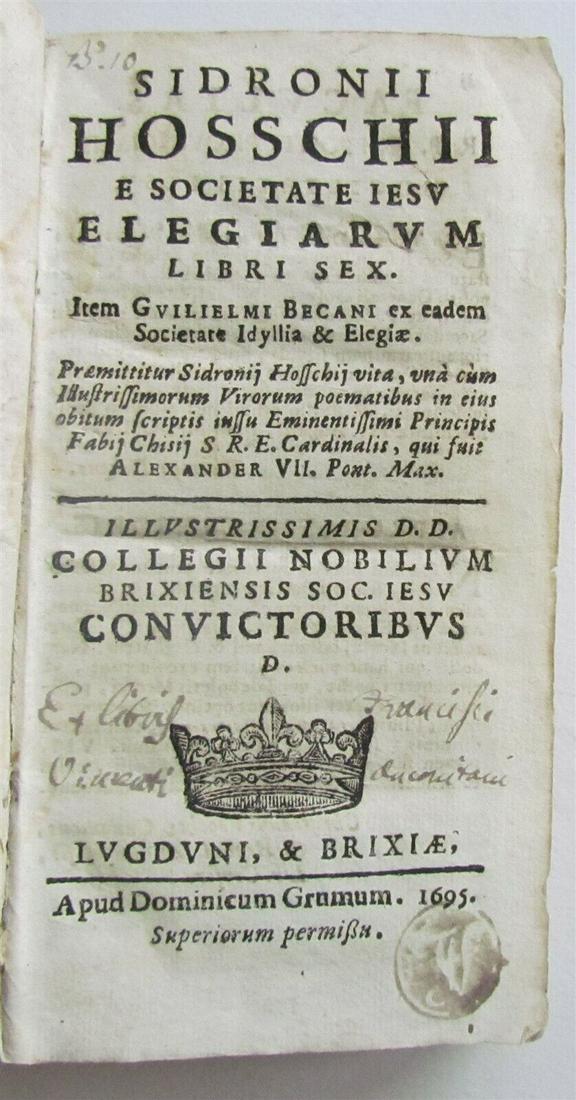 SIDRONII
HOSSCHII
E SOCIETATE IESV
ELEGIARVM
LIBRI SEX.
Item GVILIELMI BECANI ex eadem
Societate Idyllia & Elegiæ.
Præmittitur Sidronij Hoſſchij vita, vnà cùm
Illuſtriſſimorum Virorum poematibus in eius
obitum ſcriptis iuſſu Eminentiſſimi Principis
Fabij Chisij S R. E. Cardinalis, qui fuit
ALEXANDER VII. Pont. Max.
ILLVSTRISSIMIS D. D.
COLLEGII NOBILIVM
BRIXIENSIS SOC. IESV
CONVICTORIBVS
D.
Ex libris Francisci
LVGDVNI, & BRIXIÆ,
Apud Dominicum Grumum. 1695.
Superiorum permißu.